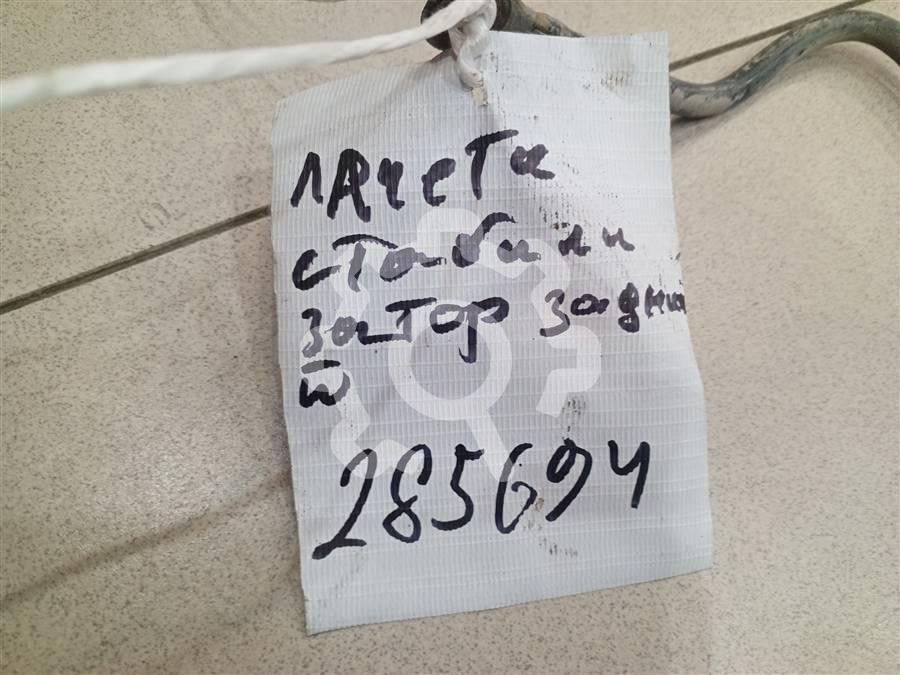 лачети
стабили
затор задни
й
285694